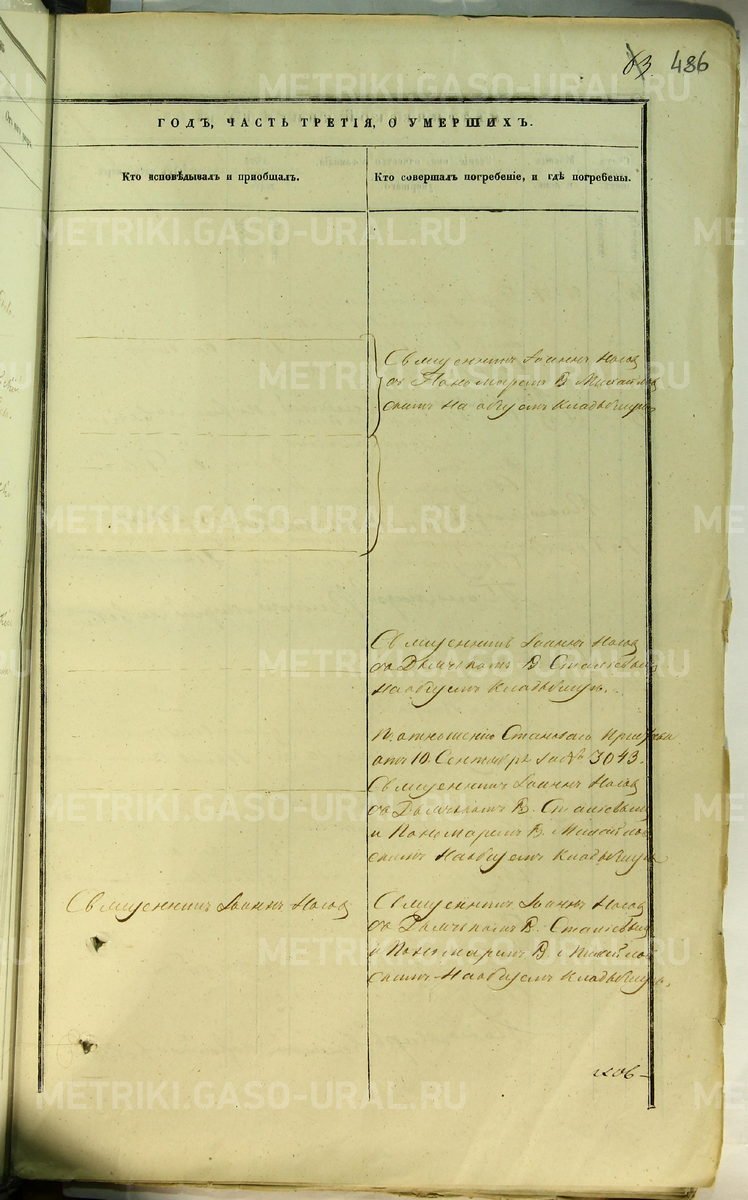 63 486
ГОДЪ, ЧАСТЬ ТРЕТІЯ, О УМЕРШИХЪ.
Кто исповѣдывалъ и пріобщалъ.
Кто совершалъ погребеніе, и гдѣ погребены.
Священникъ Іоаннъ Носов
съ Пономаремъ В. Михайлов
скимъ на общемъ кладбищѣ
Священникъ Іоаннъ Носов
съ Дьячкомъ В.
На общемъ кладбищѣ.
По отношенію Становаго Пристава
отъ 10. Сентября за № 3043.
Священникъ Іоаннъ Носов
съ Дьячкомъ В.
и Пономаремъ В. Михайлов
скимъ На общемъ кладбищѣ
Священникъ Іоаннъ Носов
Священникъ Іоаннъ Носов
съ Дьячкомъ В.
и Пономаремъ В. Михайлов
скимъ На общемъ кладбищѣ.
METRIKI.GASO-URAL.RU